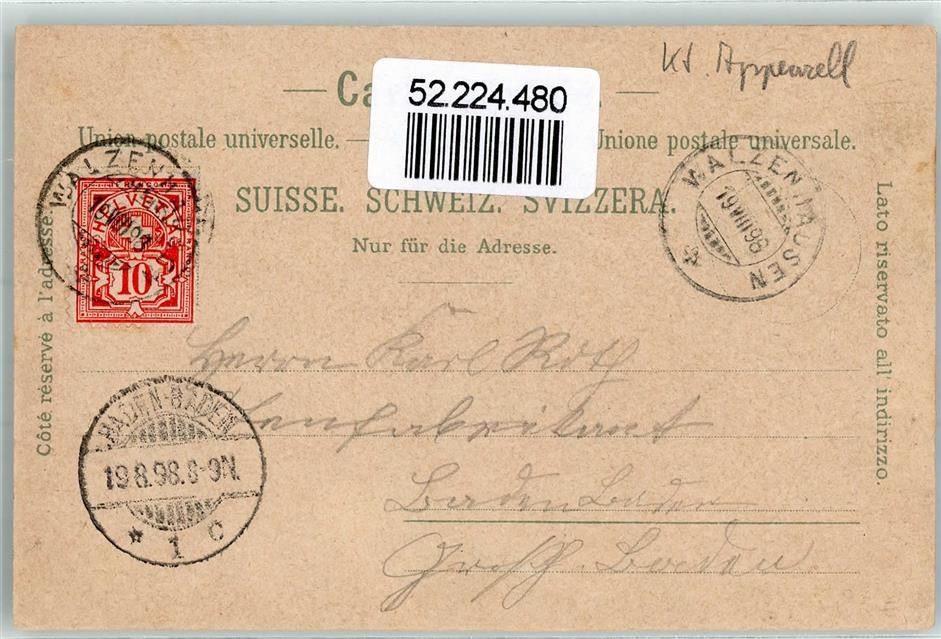 Kt. Appenzell
52.224.480
Union postale universelle. — Unione postale universale.
SUISSE. SCHWEIZ. SVIZZERA.
Nur für die Adresse.
Côté réservé à l'adresse.
Lato riservato all' indirizzo.
WALZENHAUSEN
HELVETIA
10
WALZENHAUSEN
19 VIII 98
BADEN-BADEN
19.8.98.8-9N.
* 1 C
Herrn Karl Roth
Baden Baden
Grosh. Baden